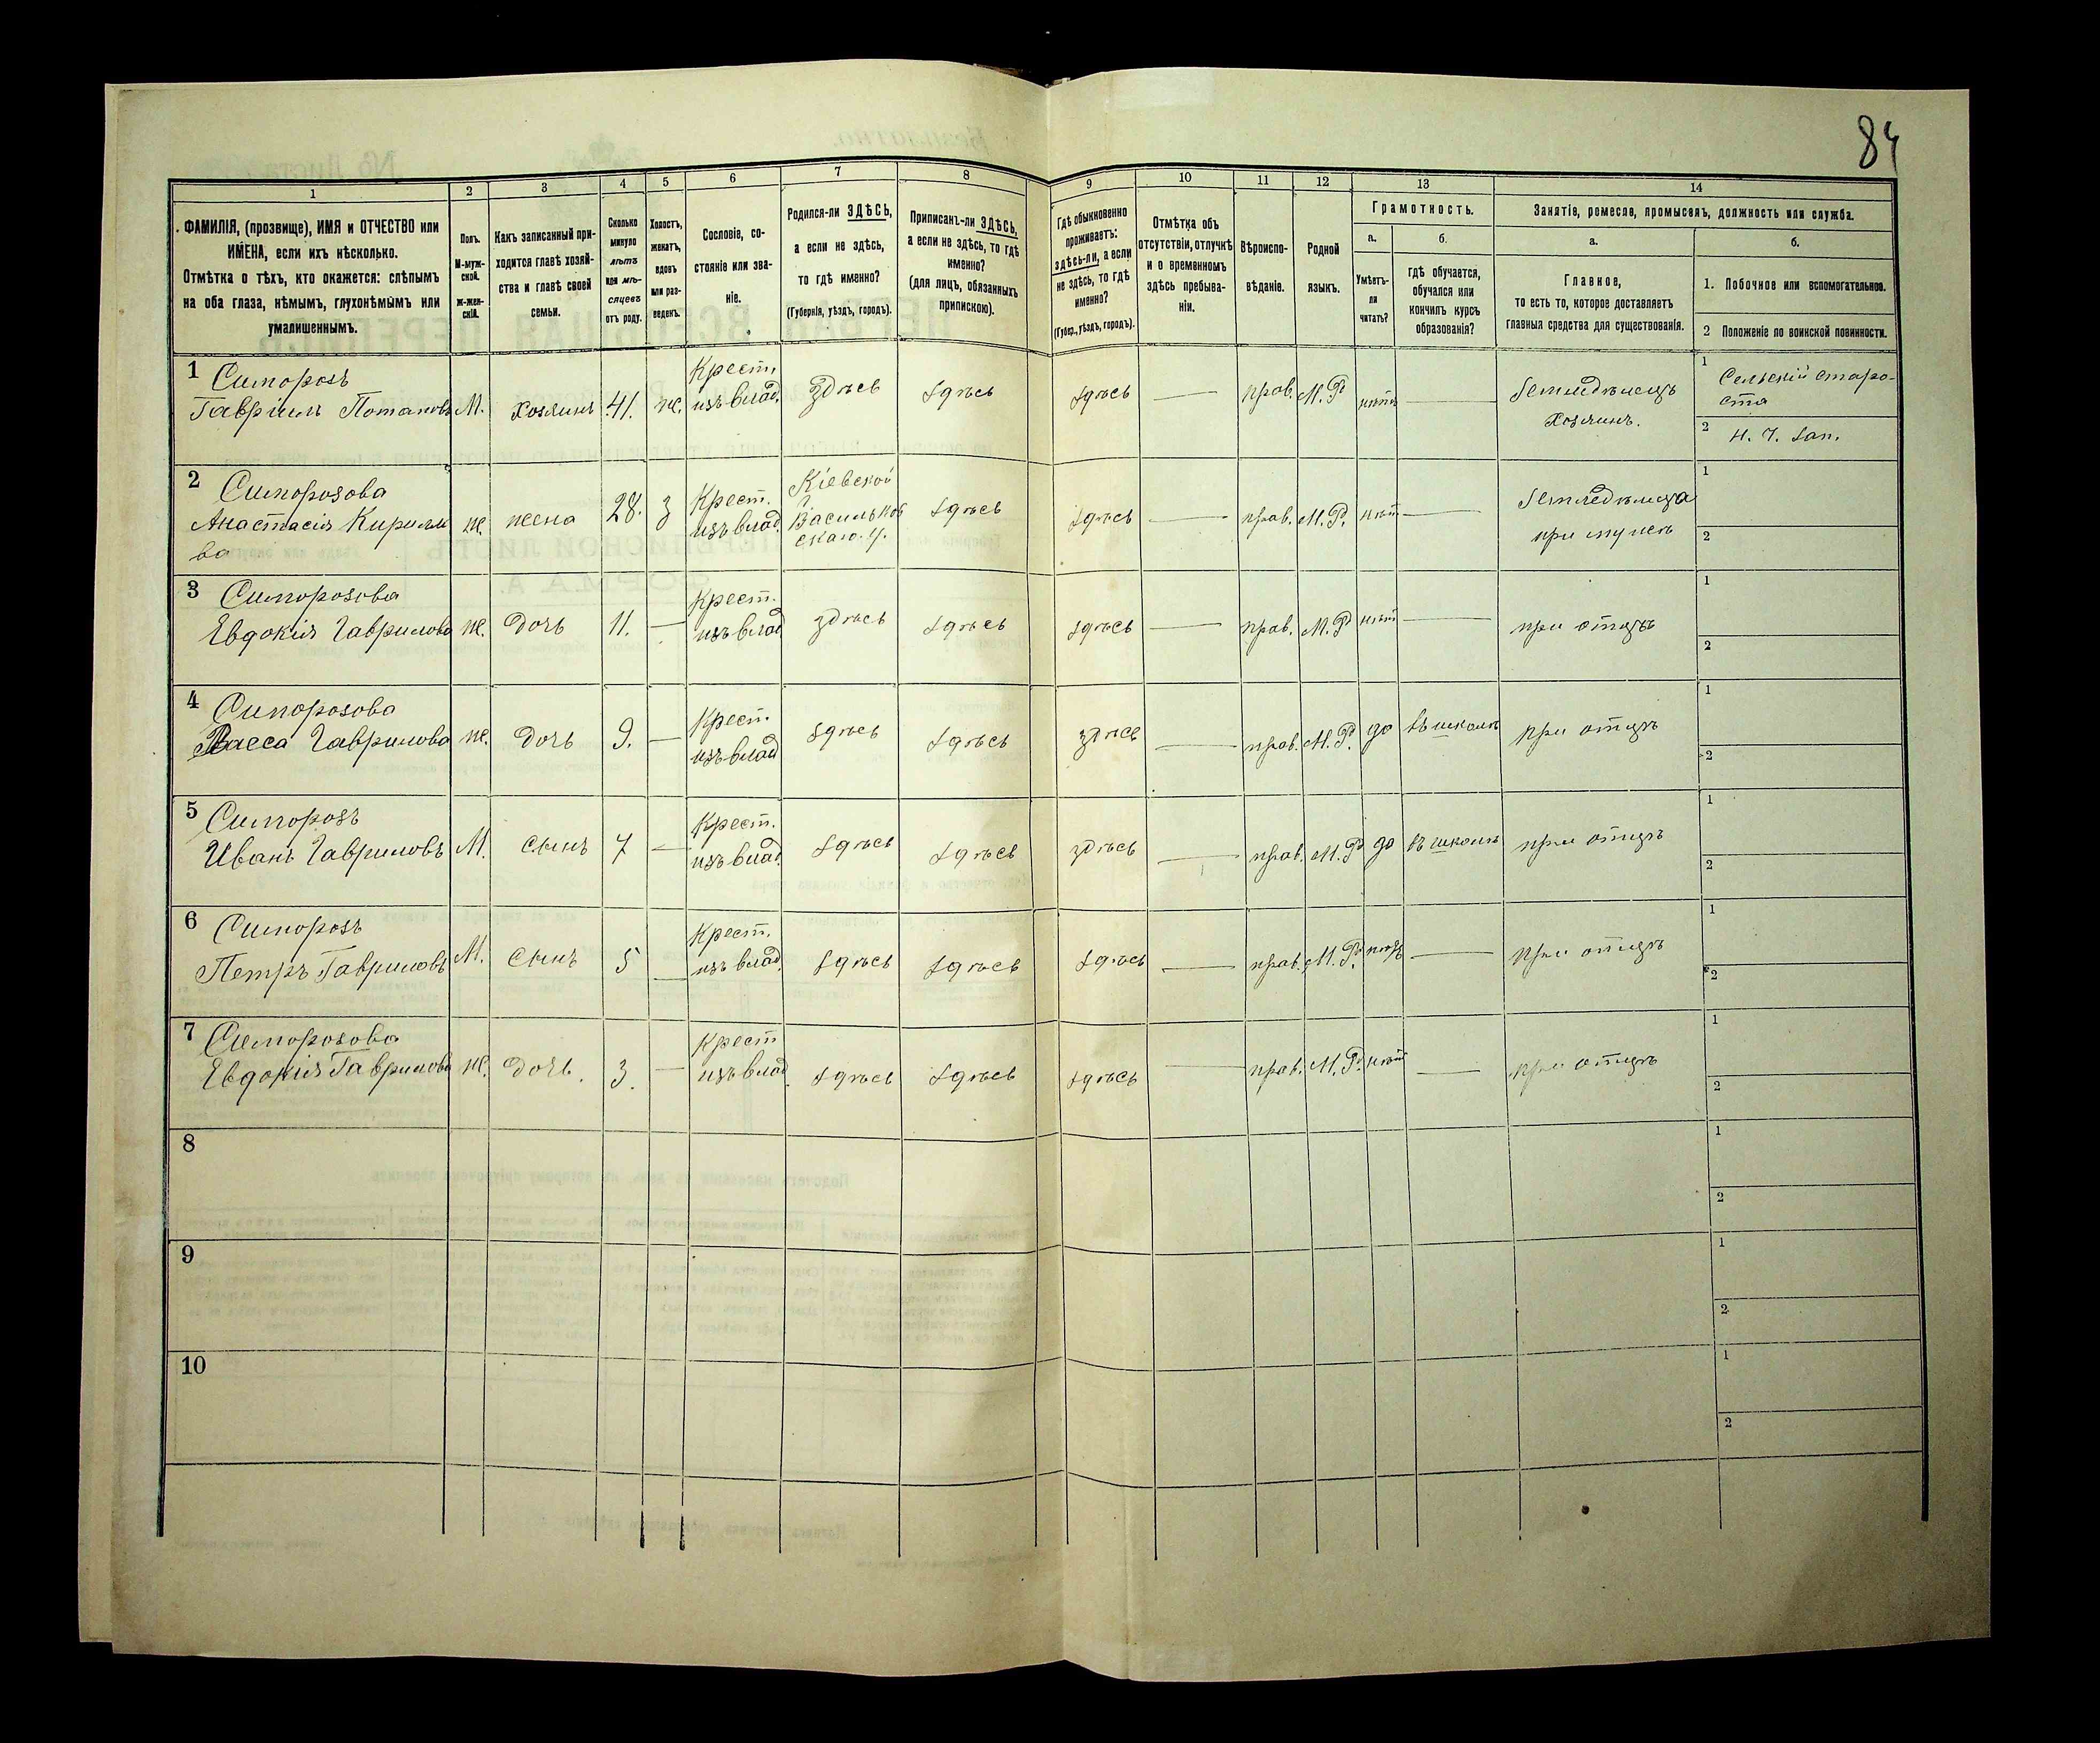 84
1 2 3 4 5 6 7 8 9 10 11 12 13 14
ФАМИЛІЯ, (прозвище), ИМЯ и ОТЧЕСТВО или
ИМЕНА, если ихъ нѣсколько.
Отмѣтка о тѣхъ, кто окажется: слѣпымъ
на оба глаза, нѣмымъ, глухонѣмымъ или
умалишеннымъ.
Полъ.
М-муж-
ской.
Ж-жен-
скій.
Какъ записанный при-
ходится главѣ хозяй-
ства и главѣ своей
семьи.
Сколько
минуло
лѣтъ
или мѣ-
сяцевъ
отъ роду.
Холостъ,
женатъ,
вдовъ
или раз-
веденъ.
Сословіе, со-
стояніе или зва-
ніе.
Родился-ли ЗДѢСЬ,
а если не здѣсь,
то гдѣ именно?
(Губернія, уѣздъ, городъ).
Приписанъ-ли ЗДѢСЬ,
а если не здѣсь, то гдѣ
именно?
(для лицъ, обязанныхъ
припискою).
Гдѣ обыкновенно
проживаетъ:
здѣсь-ли, а если
не здѣсь, то гдѣ
именно?
(Губер., уѣздъ, городъ).
Отмѣтка объ
отсутствіи, отлучкѣ
и о временномъ
здѣсь пребыва-
ніи.
Вѣроиспо-
вѣданіе.
Родной
языкъ.
Грамотность.
а.
Умѣетъ-
ли
читать?
б.
гдѣ обучается,
обучался или
кончилъ курсъ
образованія?
Занятіе, ремесло, промыселъ, должность или служба.
а.
Главное,
то есть то, которое доставляетъ
главныя средства для существованія.
б.
1. Побочное или вспомогательное.
2 Положеніе по воинской повинности.
1 Симорозъ
Гавріилъ Потаповъ М. хозяинъ 41. ж. Крест. изъ влад. здѣсь здѣсь здѣсь — прав. М. Р. нѣтъ — Земледѣлецъ
Хозяинъ.
1 Сельскій старо-
ста
2 Н. Ч. зап.
2 Симорозова
Анастасія Кирилло
ва ж. жена 28. з Крест. изъ влад. Кіевской
г. Васильков
скаго у. здѣсь здѣсь — прав. М. Р. нѣт — Земледѣлица
при мужѣ
1
2
3 Симорозова
Евдокія Гаврилова ж. дочь 11. — Крест. изъ влад здѣсь здѣсь здѣсь — прав. М. Р. нѣт — при отцѣ
1
2
4 Симорозова
Васса Гаврилова ж. дочь 9. — Крест. изъ влад здѣсь здѣсь здѣсь — прав. М. Р. да въ школѣ при отцѣ
1
2
5 Симорозъ
Иванъ Гавриловъ М. сынъ 7 — Крест. изъ влад. здѣсь здѣсь здѣсь — прав. М. Р. да въ школѣ при отцѣ
1
2
6 Симорозъ
Петръ Гавриловъ М. сынъ 5 — Крест. изъ влад. здѣсь здѣсь здѣсь — прав. М. Р. нѣтъ — при отцѣ
1
2
7 Симорозова
Евдокія Гаврилова ж. дочь. 3. — Крест изъ влад. здѣсь здѣсь здѣсь — прав. М. Р. нѣт — при отцѣ
1
2
8
1
2
9
1
2
10
1
2